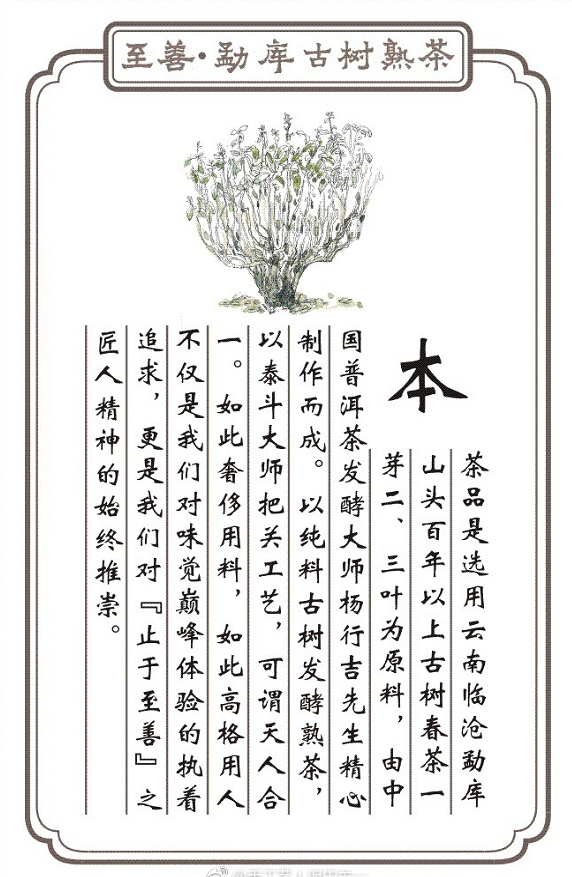 至善·勐库古树熟茶
本
茶品是选用云南临沧勐库
山头百年以上古树春茶一
芽二、三叶为原料，由中
国普洱茶发酵大师杨行吉先生精心
制作而成。以纯料古树发酵熟茶，
以泰斗大师把关工艺，可谓天人合
一。如此奢侈用料，如此高格用人
不仅是我们对味觉巅峰体验的执着
追求，更是我们对『止于至善』之
匠人精神的始终推崇。